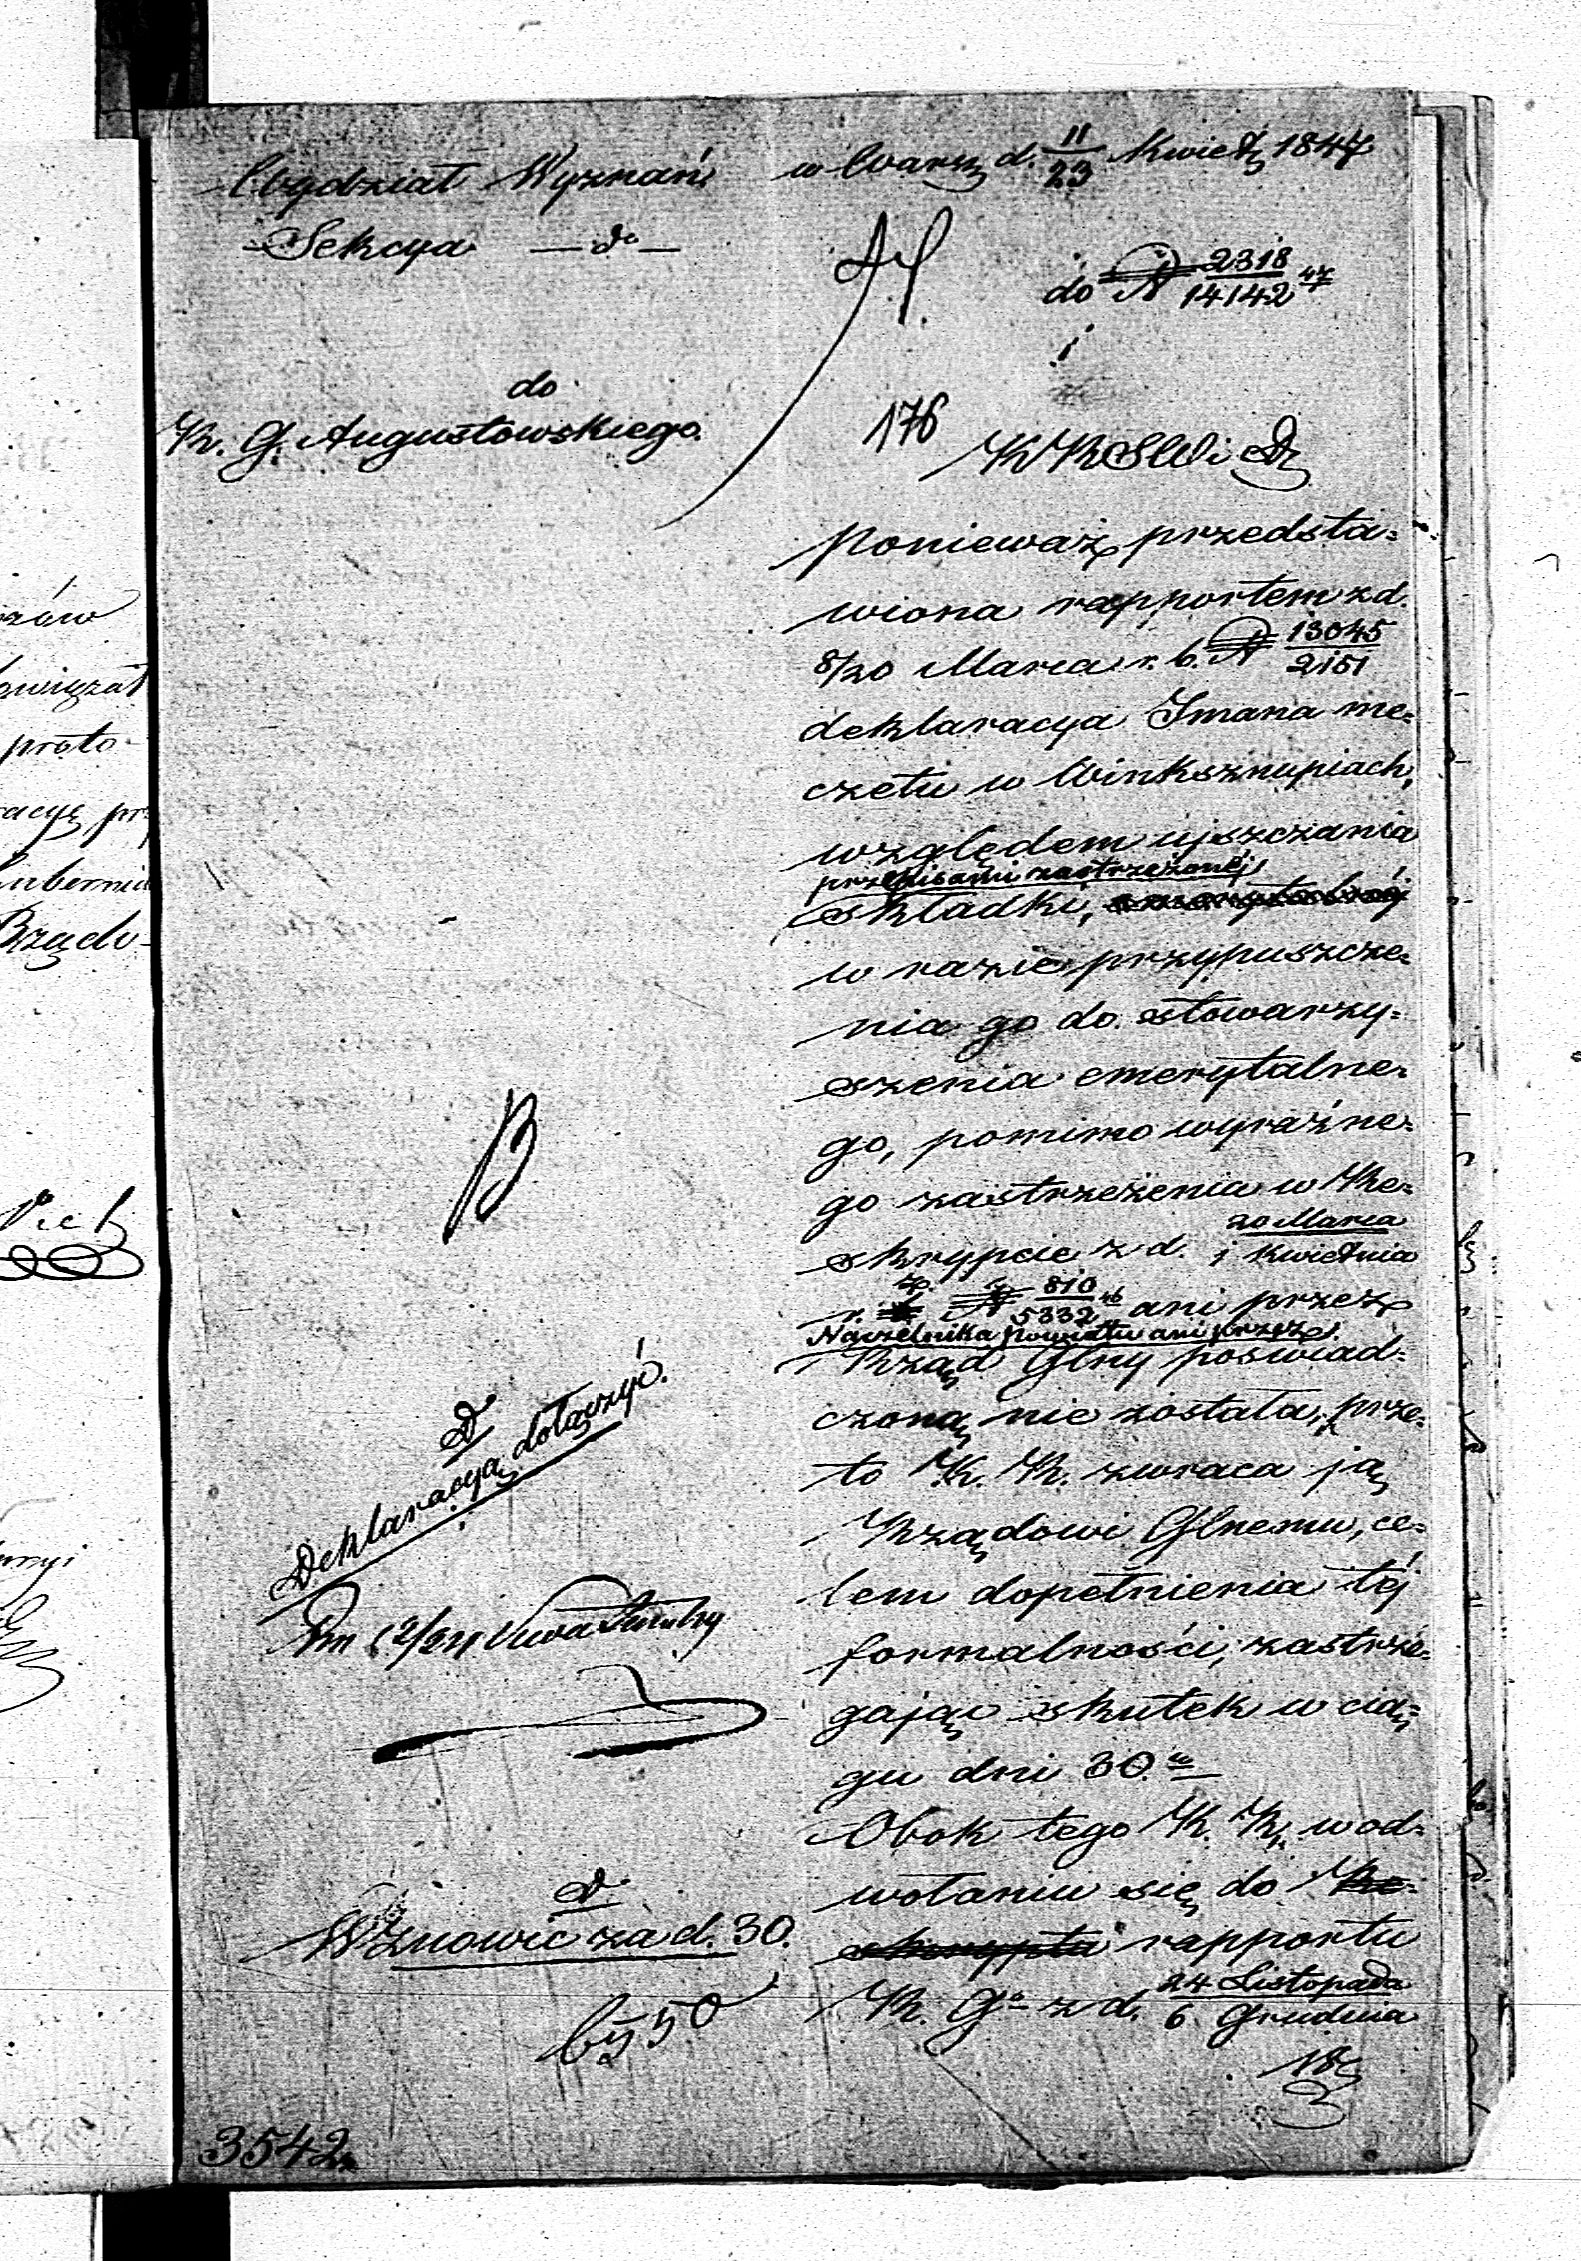 Wydział Wyznań
Sekcya — do —
w Warsz d. 11/23 Kwiet 1847
do № 2318/14142 47
i
do
R. G. Augustowskiego.
176
K R S W i D
Ponieważ przedsta=
wiona rapportem z d.
8/20 Marca r. b. № 13045/2151
deklaracya Imana me=
czetu w Winksznupiach,
względem ujszczania
przepisami zastrzeżonéj
składki,
w razie przypuszcze=
nia go do stowarzy=
szenia emerytalne=
go, pomimo wyraźne=
go zastrzeżenia w Re=
skrypcie z d. 20 Marca/1 Kwietnia
r. z. № 810/5332 46 ani przez
Naczelnika powiatu ani przez
Rząd Glny poświad=
czoną nie została, prze=
to K. R. zwraca ją
Rządowi Glnemu, ce=
lem dopełnienia téj
formalności, zastrze=
gając skutek w cią=
gu dni 30.
Obok tego K. R. w od=
wołaniu się do Re=
skryptu rapportu
R. Go z d. 24 Listopada/6 Grudnia
18
B
D
Deklaracyą dołączyć.
D
Wznowić za d. 30.
3542
zów
proto-
acyę prz
Rządo-